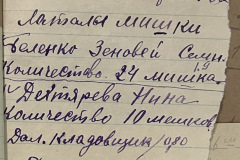 Латалы мишки
Беленко Зеновей Семн.
Количество 24 мишка.
Дейтярева Нина
Количество 10 мешков.
Дал. Кладовщик